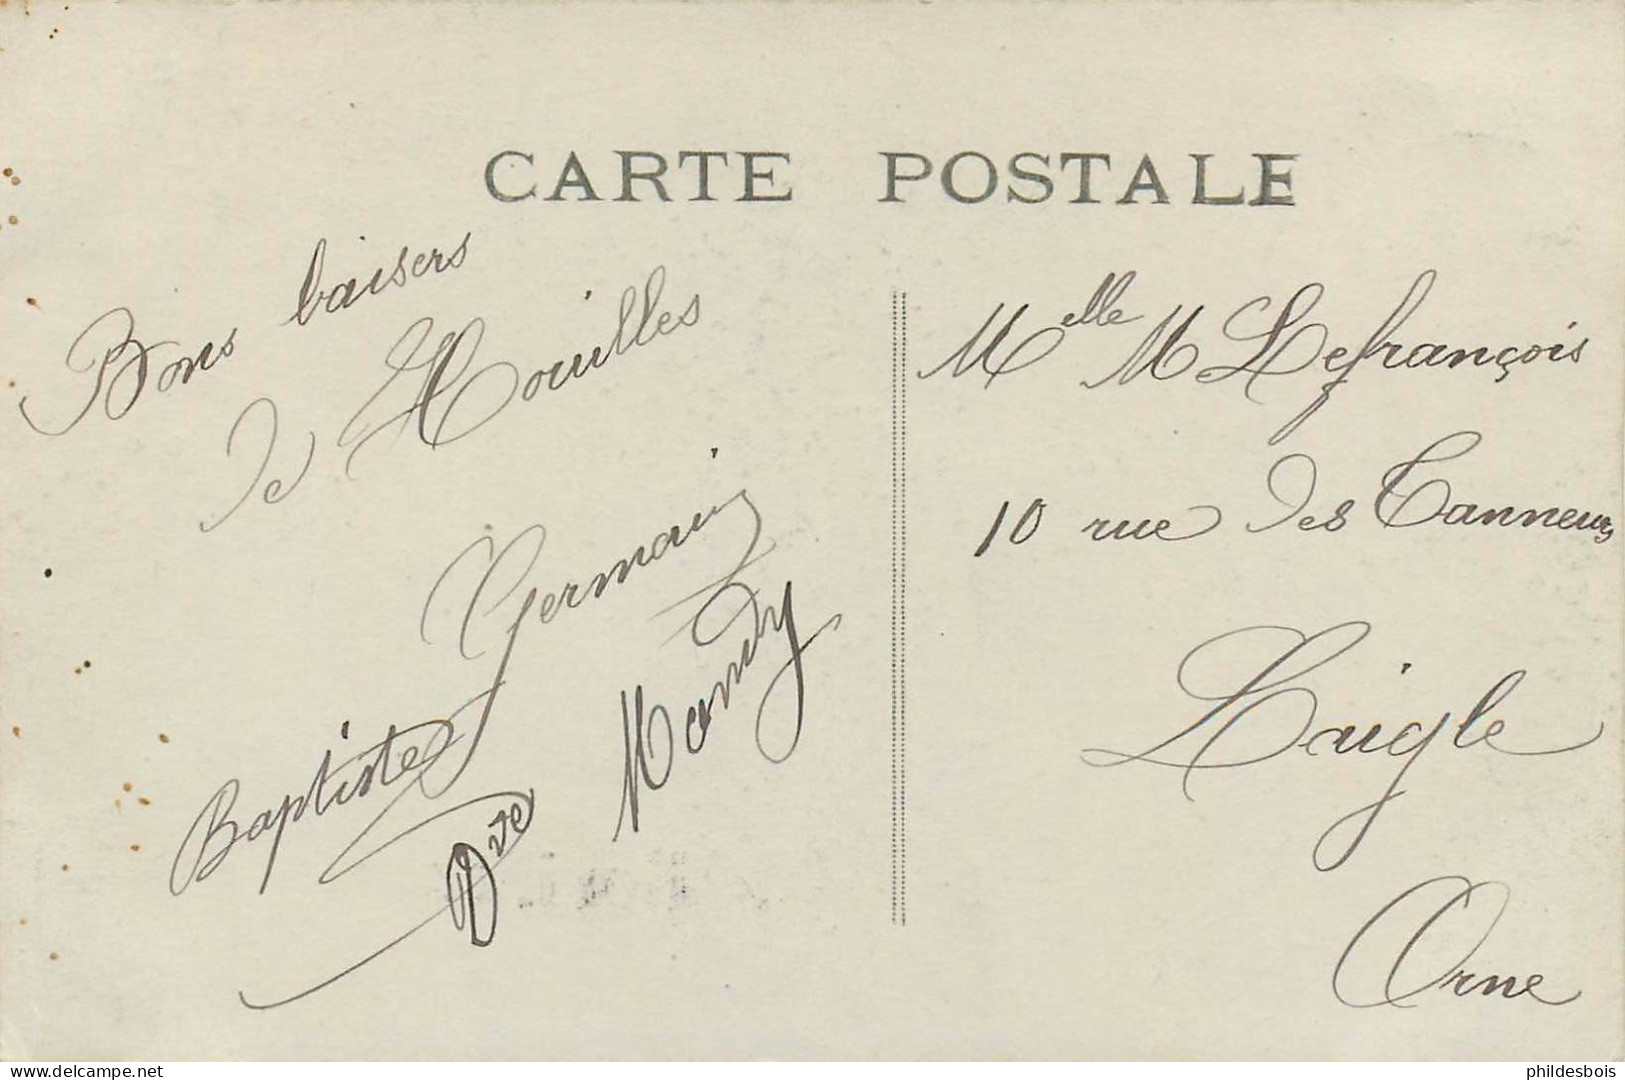 CARTE POSTALE
Bons baisers
de Houilles
Germain
Baptiste
Vve Mandy
Melle M Lefrançois
10 rue des Tanneurs
Laigle
Orne
delcampe.net
phildesbois